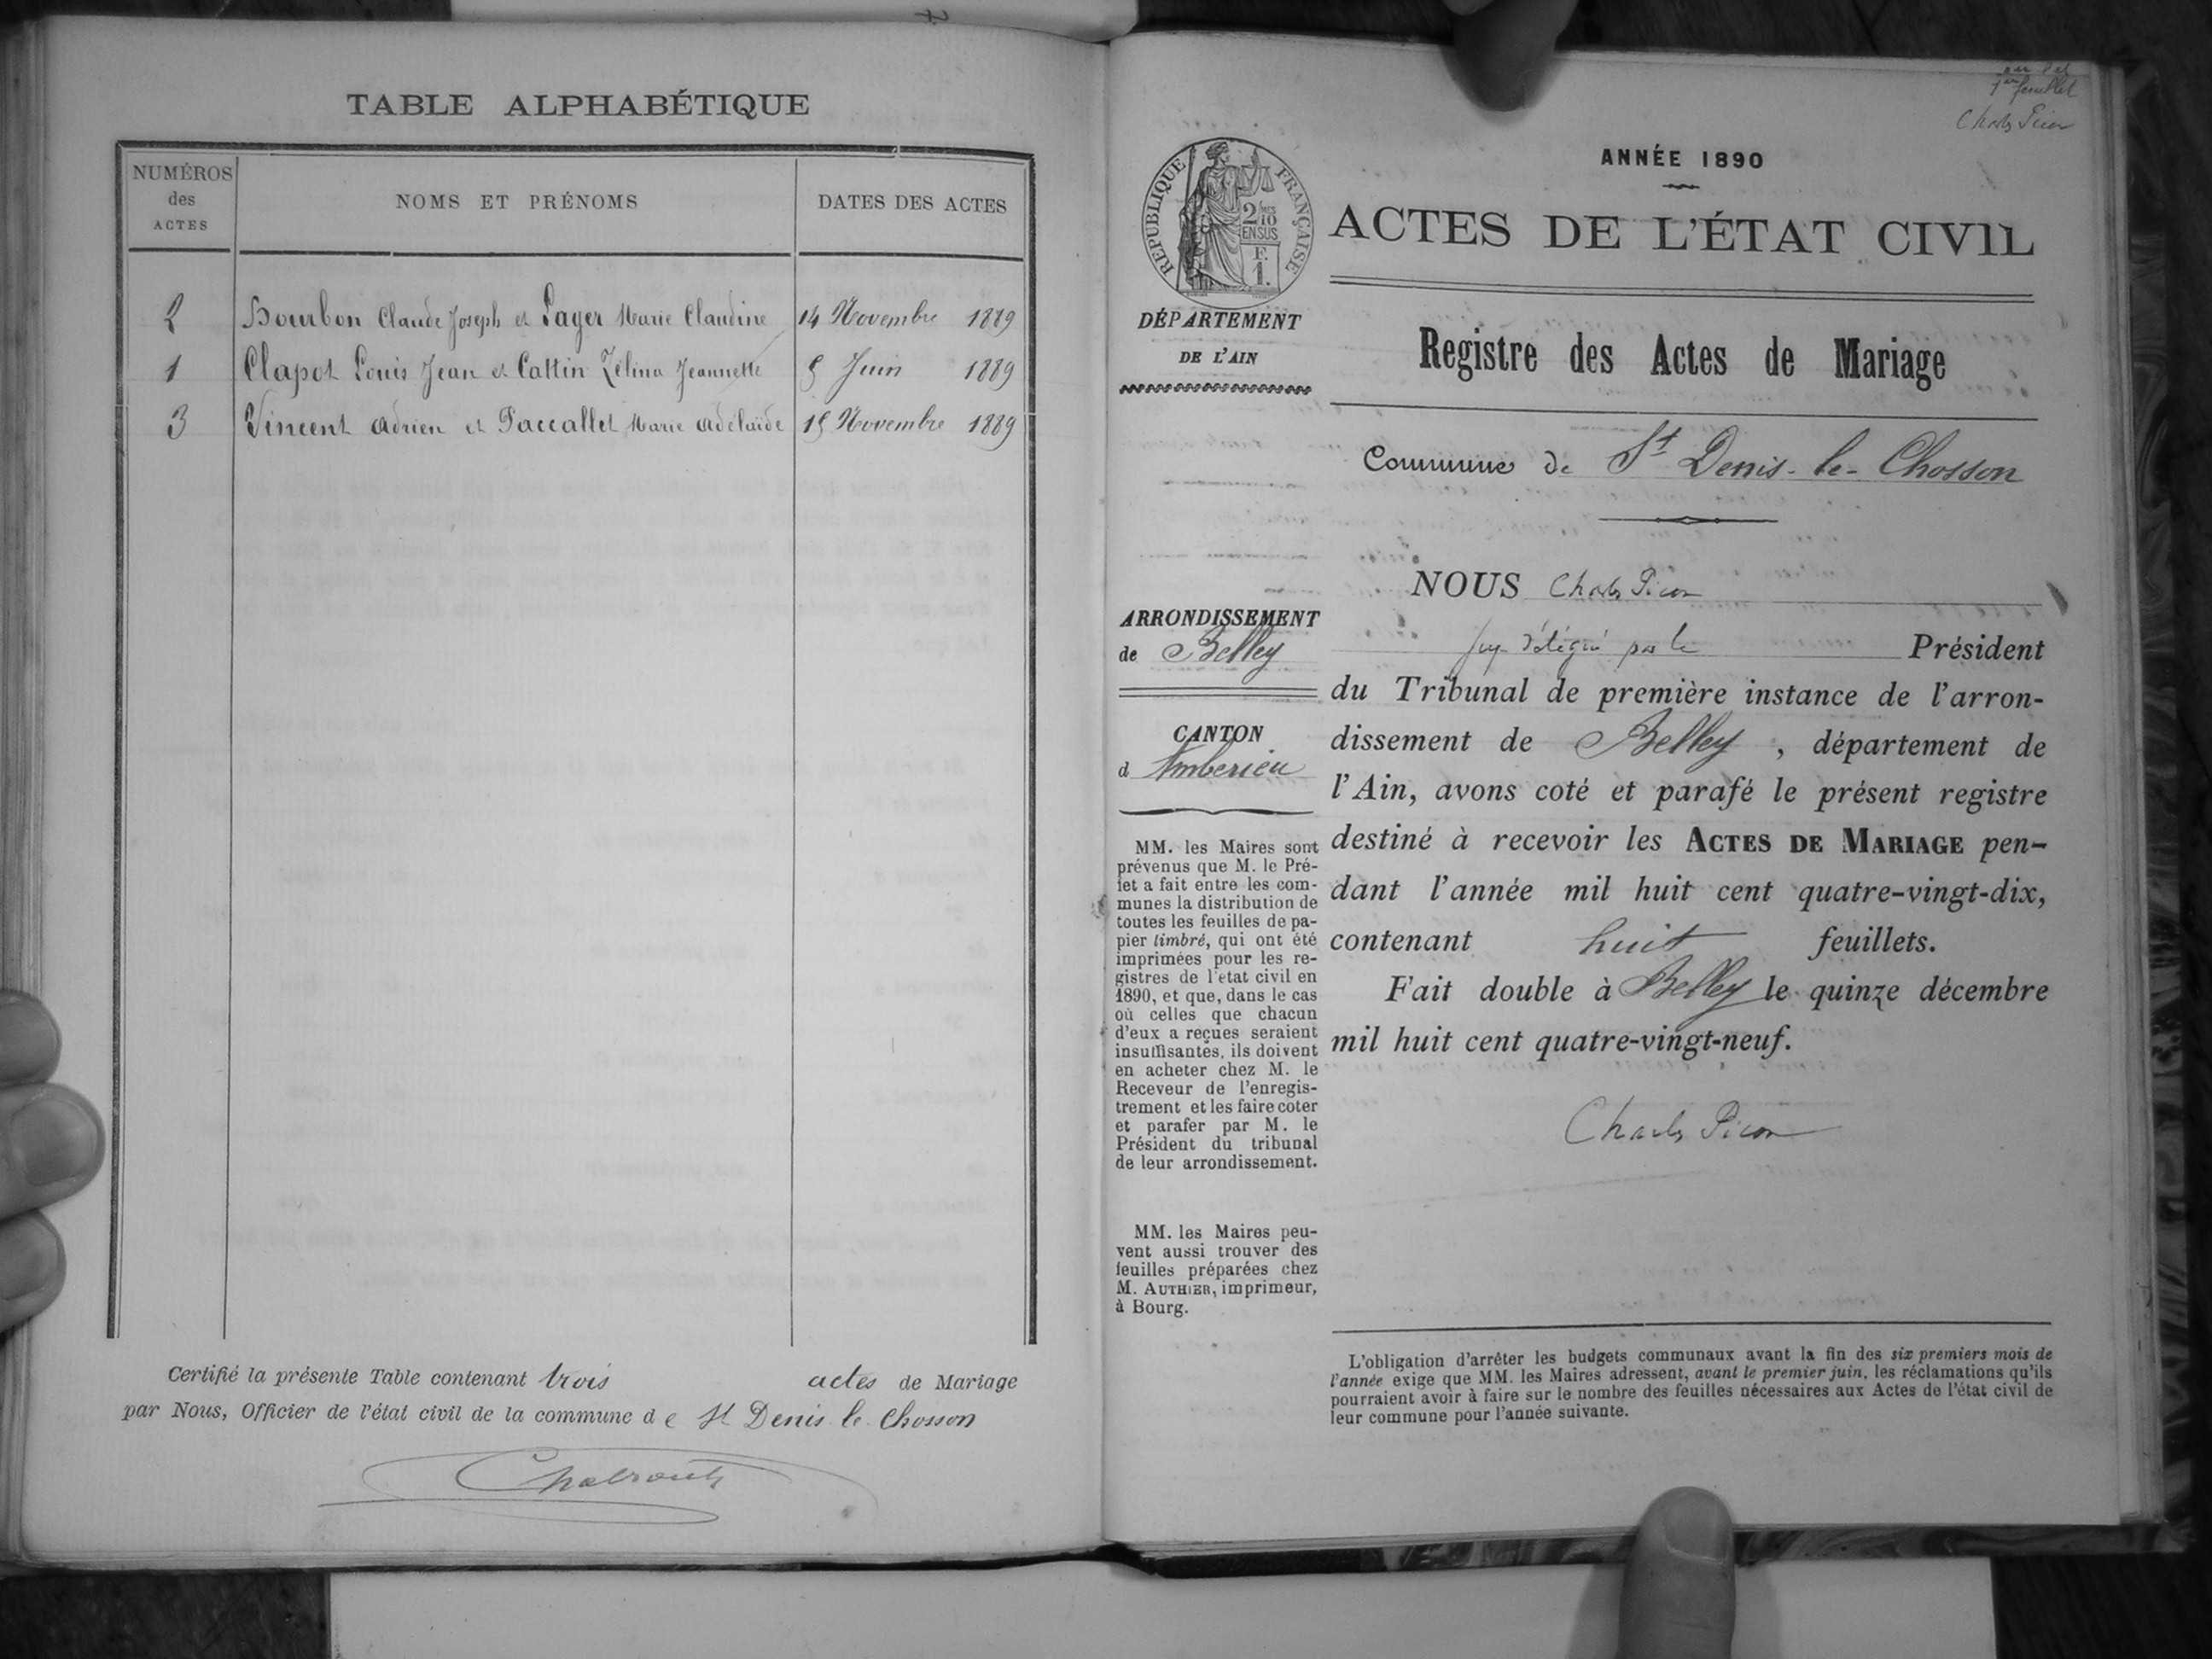 TABLE ALPHABÉTIQUE
NUMÉROS
des
ACTES
NOMS ET PRÉNOMS
DATES DES ACTES
2 Bourbon Claude Joseph et Payer Marie Claudine 14 Novembre 1889
1 Clapot Louis Jean et Cattin Zélina Jeannette 5 Juin 1889
3 Vincent Adrien et Paccallet Marie Adélaïde 15 Novembre 1889
Certifié la présente Table contenant trois actes de Mariage
par Nous, Officier de l'état civil de la commune de St Denis le Chosson
1er feuillet
Charles Picon
ANNÉE 1890
RÉPUBLIQUE FRANÇAISE
2/10
EN SUS
F.
1.
ACTES DE L'ÉTAT CIVIL
DÉPARTEMENT
DE L'AIN
Registre des Actes de Mariage
Commune de St Denis-le-Chosson
ARRONDISSEMENT
de Belley
CANTON
d Ambérieu
MM. les Maires sont
prévenus que M. le Pré-
fet a fait entre les com-
munes la distribution de
toutes les feuilles de pa-
pier timbré, qui ont été
imprimées pour les re-
gistres de l'état civil en
1890, et que, dans le cas
où celles que chacun
d'eux a reçues seraient
insuffisantes, ils doivent
en acheter chez M. le
Receveur de l'enregis-
trement et les faire coter
et parafer par M. le
Président du tribunal
de leur arrondissement.
MM. les Maires peu-
vent aussi trouver des
feuilles préparées chez
M. AUTHIER, imprimeur,
à Bourg.
NOUS Charles Picon
juge délégué par le Président
du Tribunal de première instance de l'arron-
dissement de Belley, département de
l'Ain, avons coté et parafé le présent registre
destiné à recevoir les ACTES DE MARIAGE pen-
dant l'année mil huit cent quatre-vingt-dix,
contenant huit feuillets.
Fait double à Belley le quinze décembre
mil huit cent quatre-vingt-neuf.
Charles Picon
L'obligation d'arrêter les budgets communaux avant la fin des six premiers mois de
l'année exige que MM. les Maires adressent, avant le premier juin, les réclamations qu'ils
pourraient avoir à faire sur le nombre des feuilles nécessaires aux Actes de l'état civil de
leur commune pour l'année suivante.